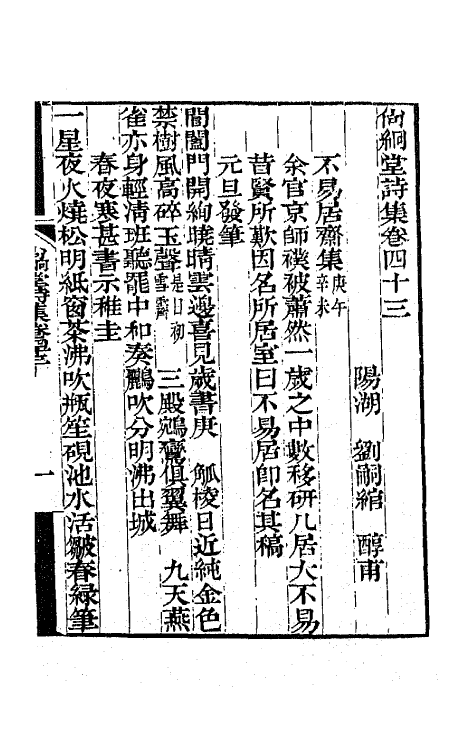 尙絅堂詩集卷四十三
陽湖 劉嗣綰 醇甫
不易居齋集庚午辛未
余官京師襆被蕭然一歲之中數移研几居大不易
昔賢所歎因名所居室曰不易居卽名其稿
元旦發筆
閶闔門開絢曉晴雲邊喜見歲書庚 觚棱日近純金色
禁樹風高碎玉聲是日初雪霽 三殿鵷鸞俱翼舞 九天燕
雀亦身輕淸班聽罷中和奏鸝吹分明沸出城
春夜寒甚書示稚圭
一星夜火燒松明紙窗茶沸吹瓶笙硯池水活皺春綠筆
尙絅堂詩集卷四十三
一